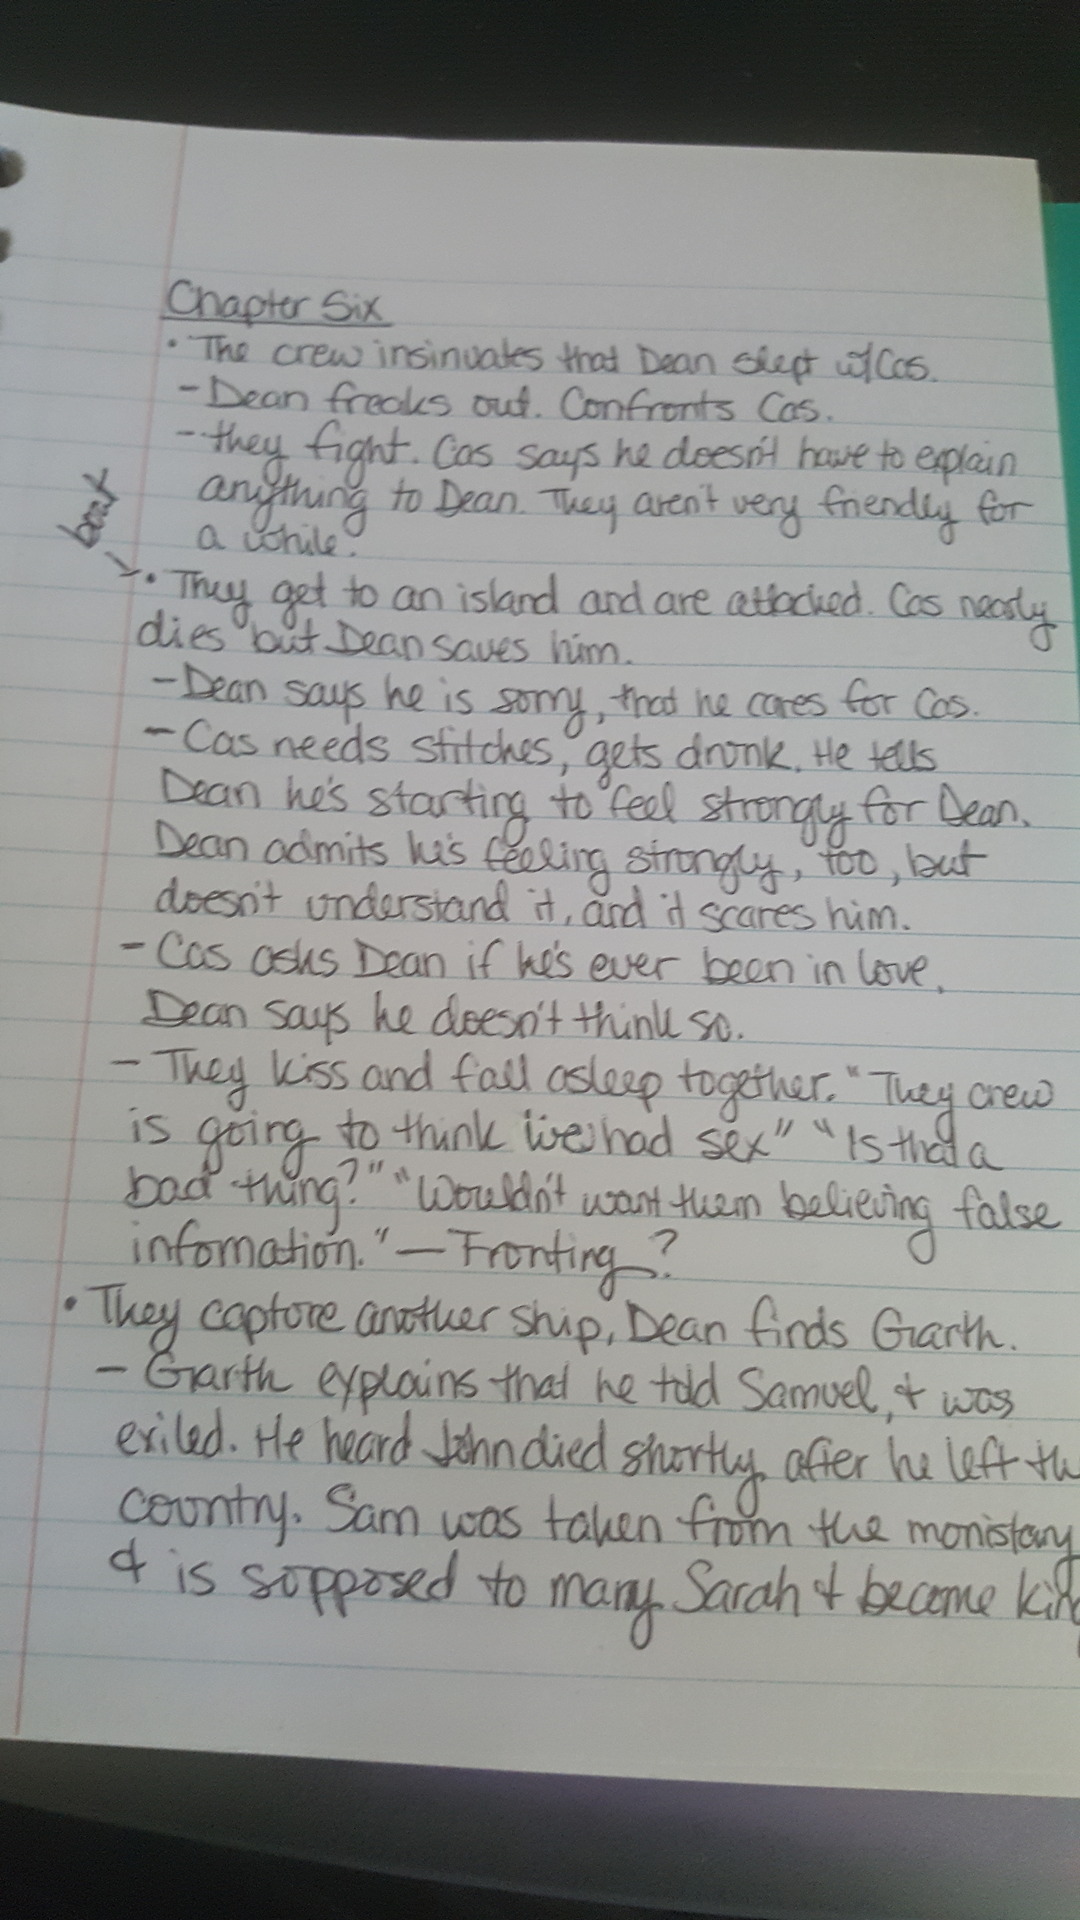 Chapter Six
• The crew insinuates that Dean slept w/ Cas.
- Dean freaks out. Confronts Cas.
- they fight. Cas says he doesn't have to explain
anything to Dean. They aren't very friendly for
a while.
• They get to an island and are attacked. Cas nearly
dies but Dean saves him.
- Dean says he is sorry, that he cares for Cas.
- Cas needs stitches, gets drunk. He tells
Dean he's starting to feel strongly for Dean.
Dean admits he's feeling strongly, too, but
doesn't understand it, and it scares him.
- Cas asks Dean if he's ever been in love.
Dean says he doesn't think so.
- They kiss and fall asleep together. "They crew
is going to think we had sex" "Is that a
bad thing?" "Wouldn't want them believing false
infomation." — Fronting?
• They capture another ship, Dean finds Garth.
- Garth explains that he told Samuel, & was
exiled. He heard John died shortly after he left th
country. Sam was taken from the monistary
& is supposed to marry Sarah & become kin